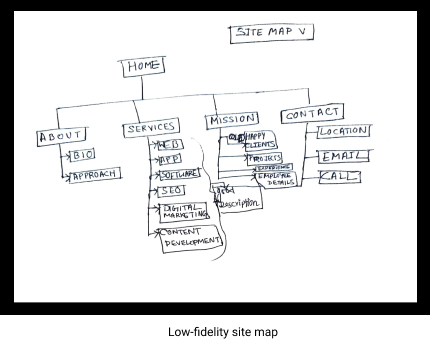 SITE MAP V
HOME
ABOUT
BIO
APPROACH
SERVICES
WEB
APP
SOFTWARE
SEO
DIGITAL
MARKETING
CONTENT
DEVELOPMENT
MISSION
HAPPY
CLIENTS
PROJECTS
EXPERIENCE
EMPLOYEE
DETAILS
Description
CONTACT
LOCATION
EMAIL
CALL
Low-fidelity site map